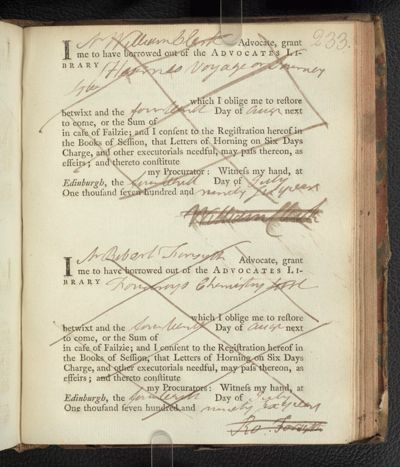 233.
I Mr William Clerk Advocate, grant
me to have borrowed out of the ADVOCATES LI-
BRARY Voyage or Journey
which I oblige me to reſtore
betwixt and the fourteenth Day of Augt next
to come, or the Sum of
in caſe of Failzie; and I conſent to the Regiſtration hereof in
the Books of Seſſion, that Letters of Horning on Six Days
Charge, and other executorials needful, may paſs thereon, as
effeirs; and thereto conſtitute
my Procurator: Witneſs my hand, at
Edinburgh, the fourteenth Day of July
One thouſand ſeven hundred and ninety six years
William Clerk
I Mr Robert Forsyth Advocate, grant
me to have borrowed out of the ADVOCATES LI-
BRARY Fourcroys Chemistry
which I oblige me to reſtore
betwixt and the Day of Augt next
to come, or the Sum of
in caſe of Failzie; and I conſent to the Regiſtration hereof in
the Books of Seſſion, that Letters of Horning on Six Days
Charge, and other executorials needful, may paſs thereon, as
effeirs; and thereto conſtitute
my Procurators: Witneſs my hand, at
Edinburgh, the Day of July
One thouſand ſeven hundred and ninety six years
Ro. Forsyth